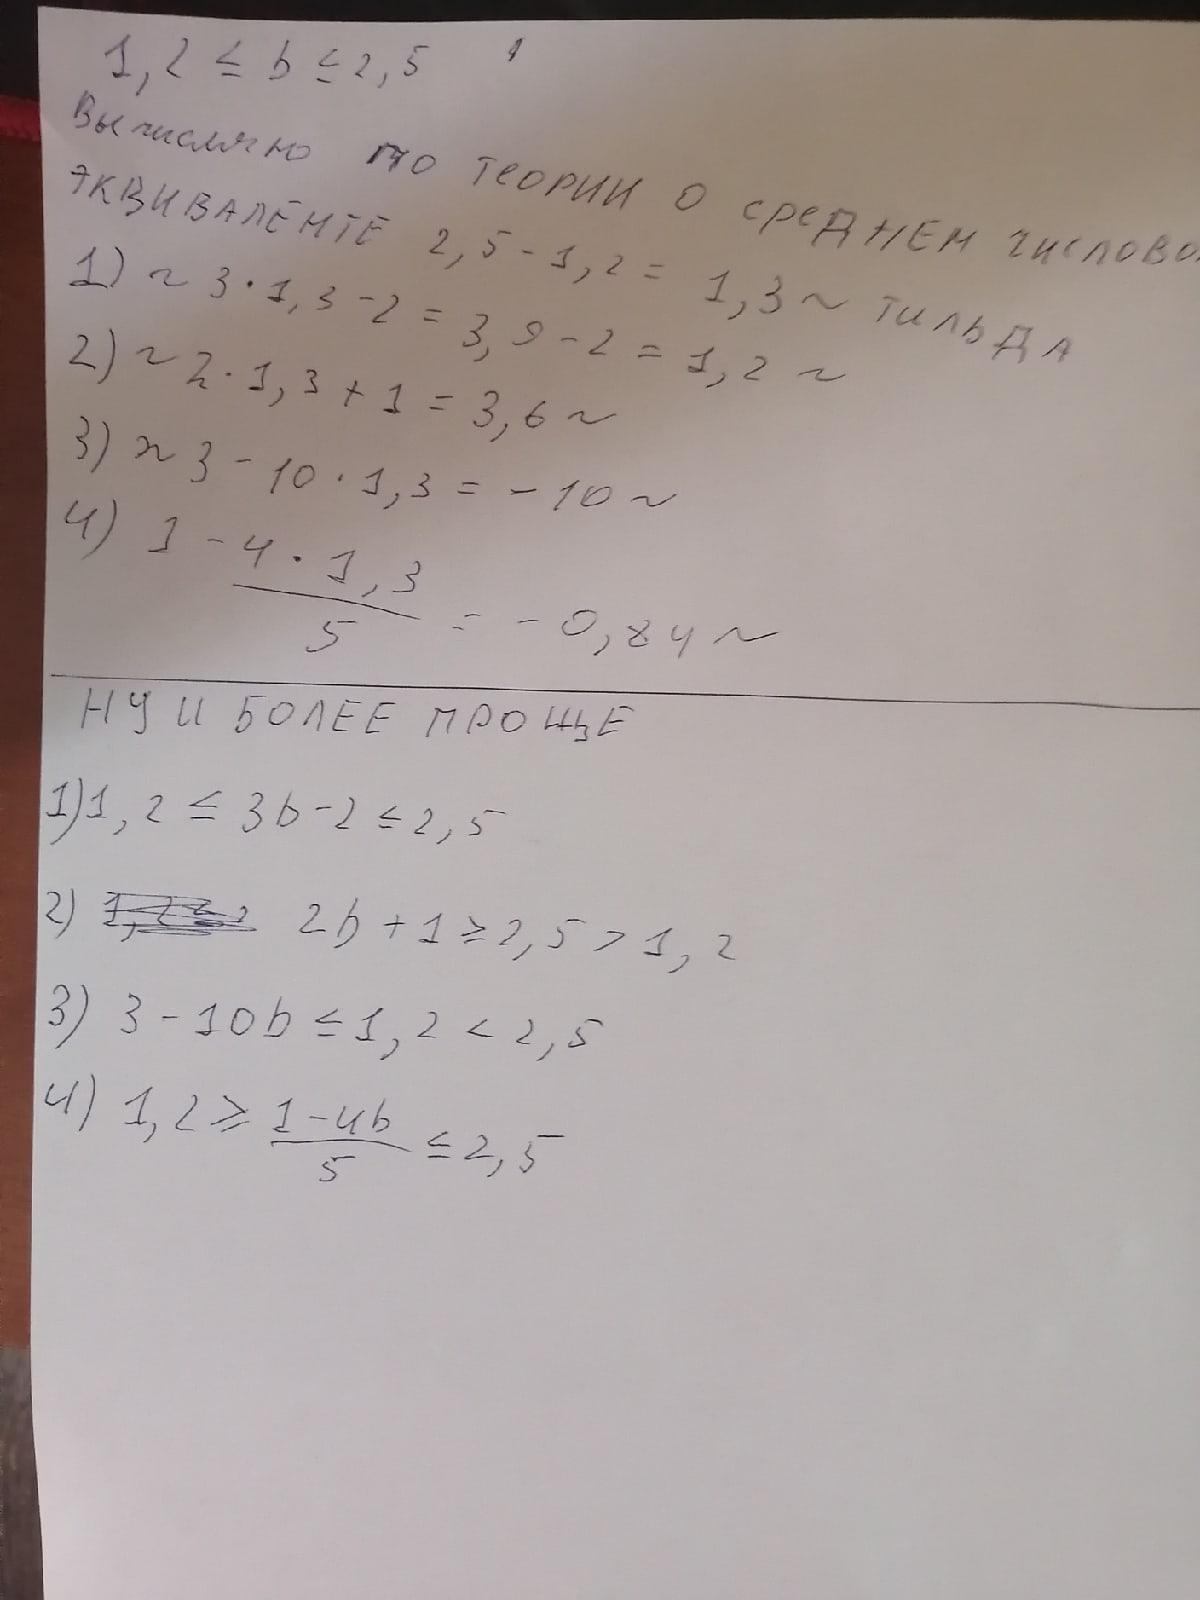 1,2 ≤ b ≤ 2,5
Вычисляно по теории о среднем числово
эквиваленте 2,5 - 1,2 = 1,3 ~ тильда
1) ~ 3 · 1,3 - 2 = 3,9 - 2 = 1,2 ~
2) ~ 2 · 1,3 + 1 = 3,6 ~
3) ~ 3 - 10 · 1,3 = - 10 ~
4) 1 - 4 · 1,3 / 5 = - 0,84 ~
НУ И БОЛЕЕ ПРОЩЕ
1) 1,2 ≤ 3b - 2 ≤ 2,5
2) 2b + 1 ≥ 2,5 > 1,2
3) 3 - 10b ≤ 1,2 < 2,5
4) 1,2 ≥ 1 - 4b / 5 ≤ 2,5